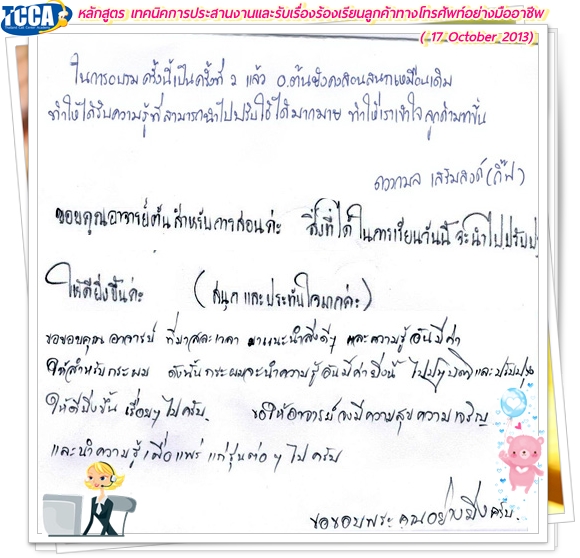 TCCA
Thailand Call Center Academy
หลักสูตร เทคนิคการประสานงานและรับเรื่องร้องเรียนลูกค้าทางโทรศัพท์อย่างมืออาชีพ
( 17 October 2013)
ในการอบรมครั้งนี้เป็นครั้งที่ 2 แล้ว อ.ต้นยังคงสอนสนุกเหมือนเดิม
ทำให้ได้รับความรู้ที่สามารถนำไปปรับใช้ได้มากมาย ทำให้เราเข้าใจลูกค้ามากขึ้น
เสริมสงค์ (กิ๊ฟ)
ขอบคุณอาจารย์ต้นสำหรับการสอนค่ะ สิ่งที่ได้ในการเรียนวันนี้จะนำไปปรับปรุ
ให้ดียิ่งขึ้นค่ะ (สนุกและประทับใจมากค่ะ)
ขอขอบคุณอาจารย์ ที่มาสละเวลา มาแนะนำสิ่งดีๆ และความรู้อันมีค่า
ให้สำหรับกระผม ดังนั้นกระผมจะนำความรู้อันมีค่ายิ่งนี้ ไปปฏิบัติและปรับปรุง
ให้ดียิ่งขึ้น เรื่อยๆ ไปครับ. ขอให้อาจารย์จงมีความสุขความเจริญ
และนำความรู้เผื่อแพร่ แก่รุ่นต่อๆ ไปครับ
ขอขอบพระคุณอย่างยิ่งครับ.